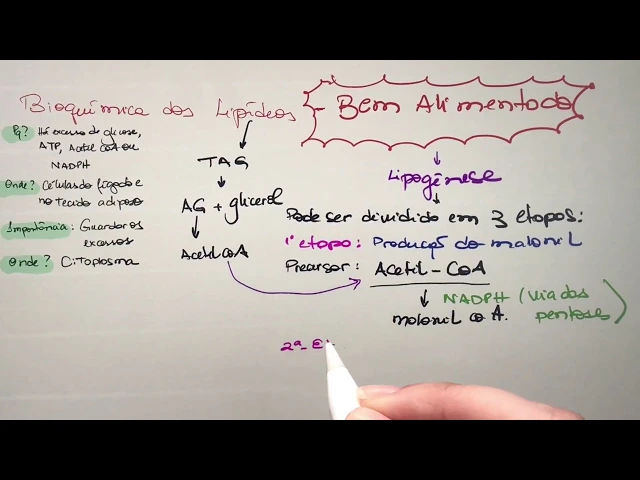 Bioquímica dos Lipídeos
Pq? Há excesso de glicose,
ATP, Acetil CoA ou
NADPH
Onde? Células do fígado e
no tecido adiposo
Importância: Guardar os
excessos
Onde? Citoplasma
TAG
AG + glicerol
Acetil CoA
Bem Alimentado
Lipogênese
Pode ser dividido em 3 etapas:
1ª etapa: Produção do malonil
Precursor: Acetil-CoA
NADPH (via das
pentoses)
malonil CoA.
2ª- E